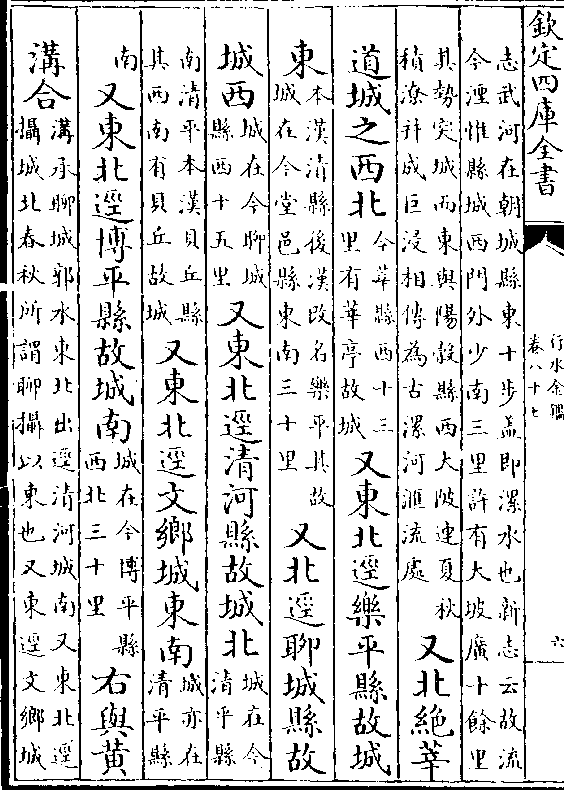 欽定四庫全書
行水金鑑
卷八十七
六
志武河在朝城縣東十步蓋即漯水也新志云故流
今湮惟縣城西門外少南三里許有大坡廣十餘里
其勢突城而東與陽穀縣西大陂連夏秋
積潦幷成巨浸相傳為古漯河滙流處
又北絶莘
道城之西北
今莘縣西十三
里有莘亭故城
又東北逕樂平縣故城
東
本漢清縣後漢改名樂平其故
城在今堂邑縣東南三十里
又北逕聊城縣故
城西
城在今聊城
縣西十五里
又東北逕清河縣故城北
城在今
清平縣
南清平本漢貝丘縣
其西南有貝丘故城
又東北逕文鄉城東南
城亦在
清平縣
南
又東北逕博平縣故城南
城在今博平縣
西北三十里
右與黄
溝合
溝承聊城郭水東北出逕清河城南又東北逕
攝城北春秋所謂聊攝以東也又東逕文鄉城